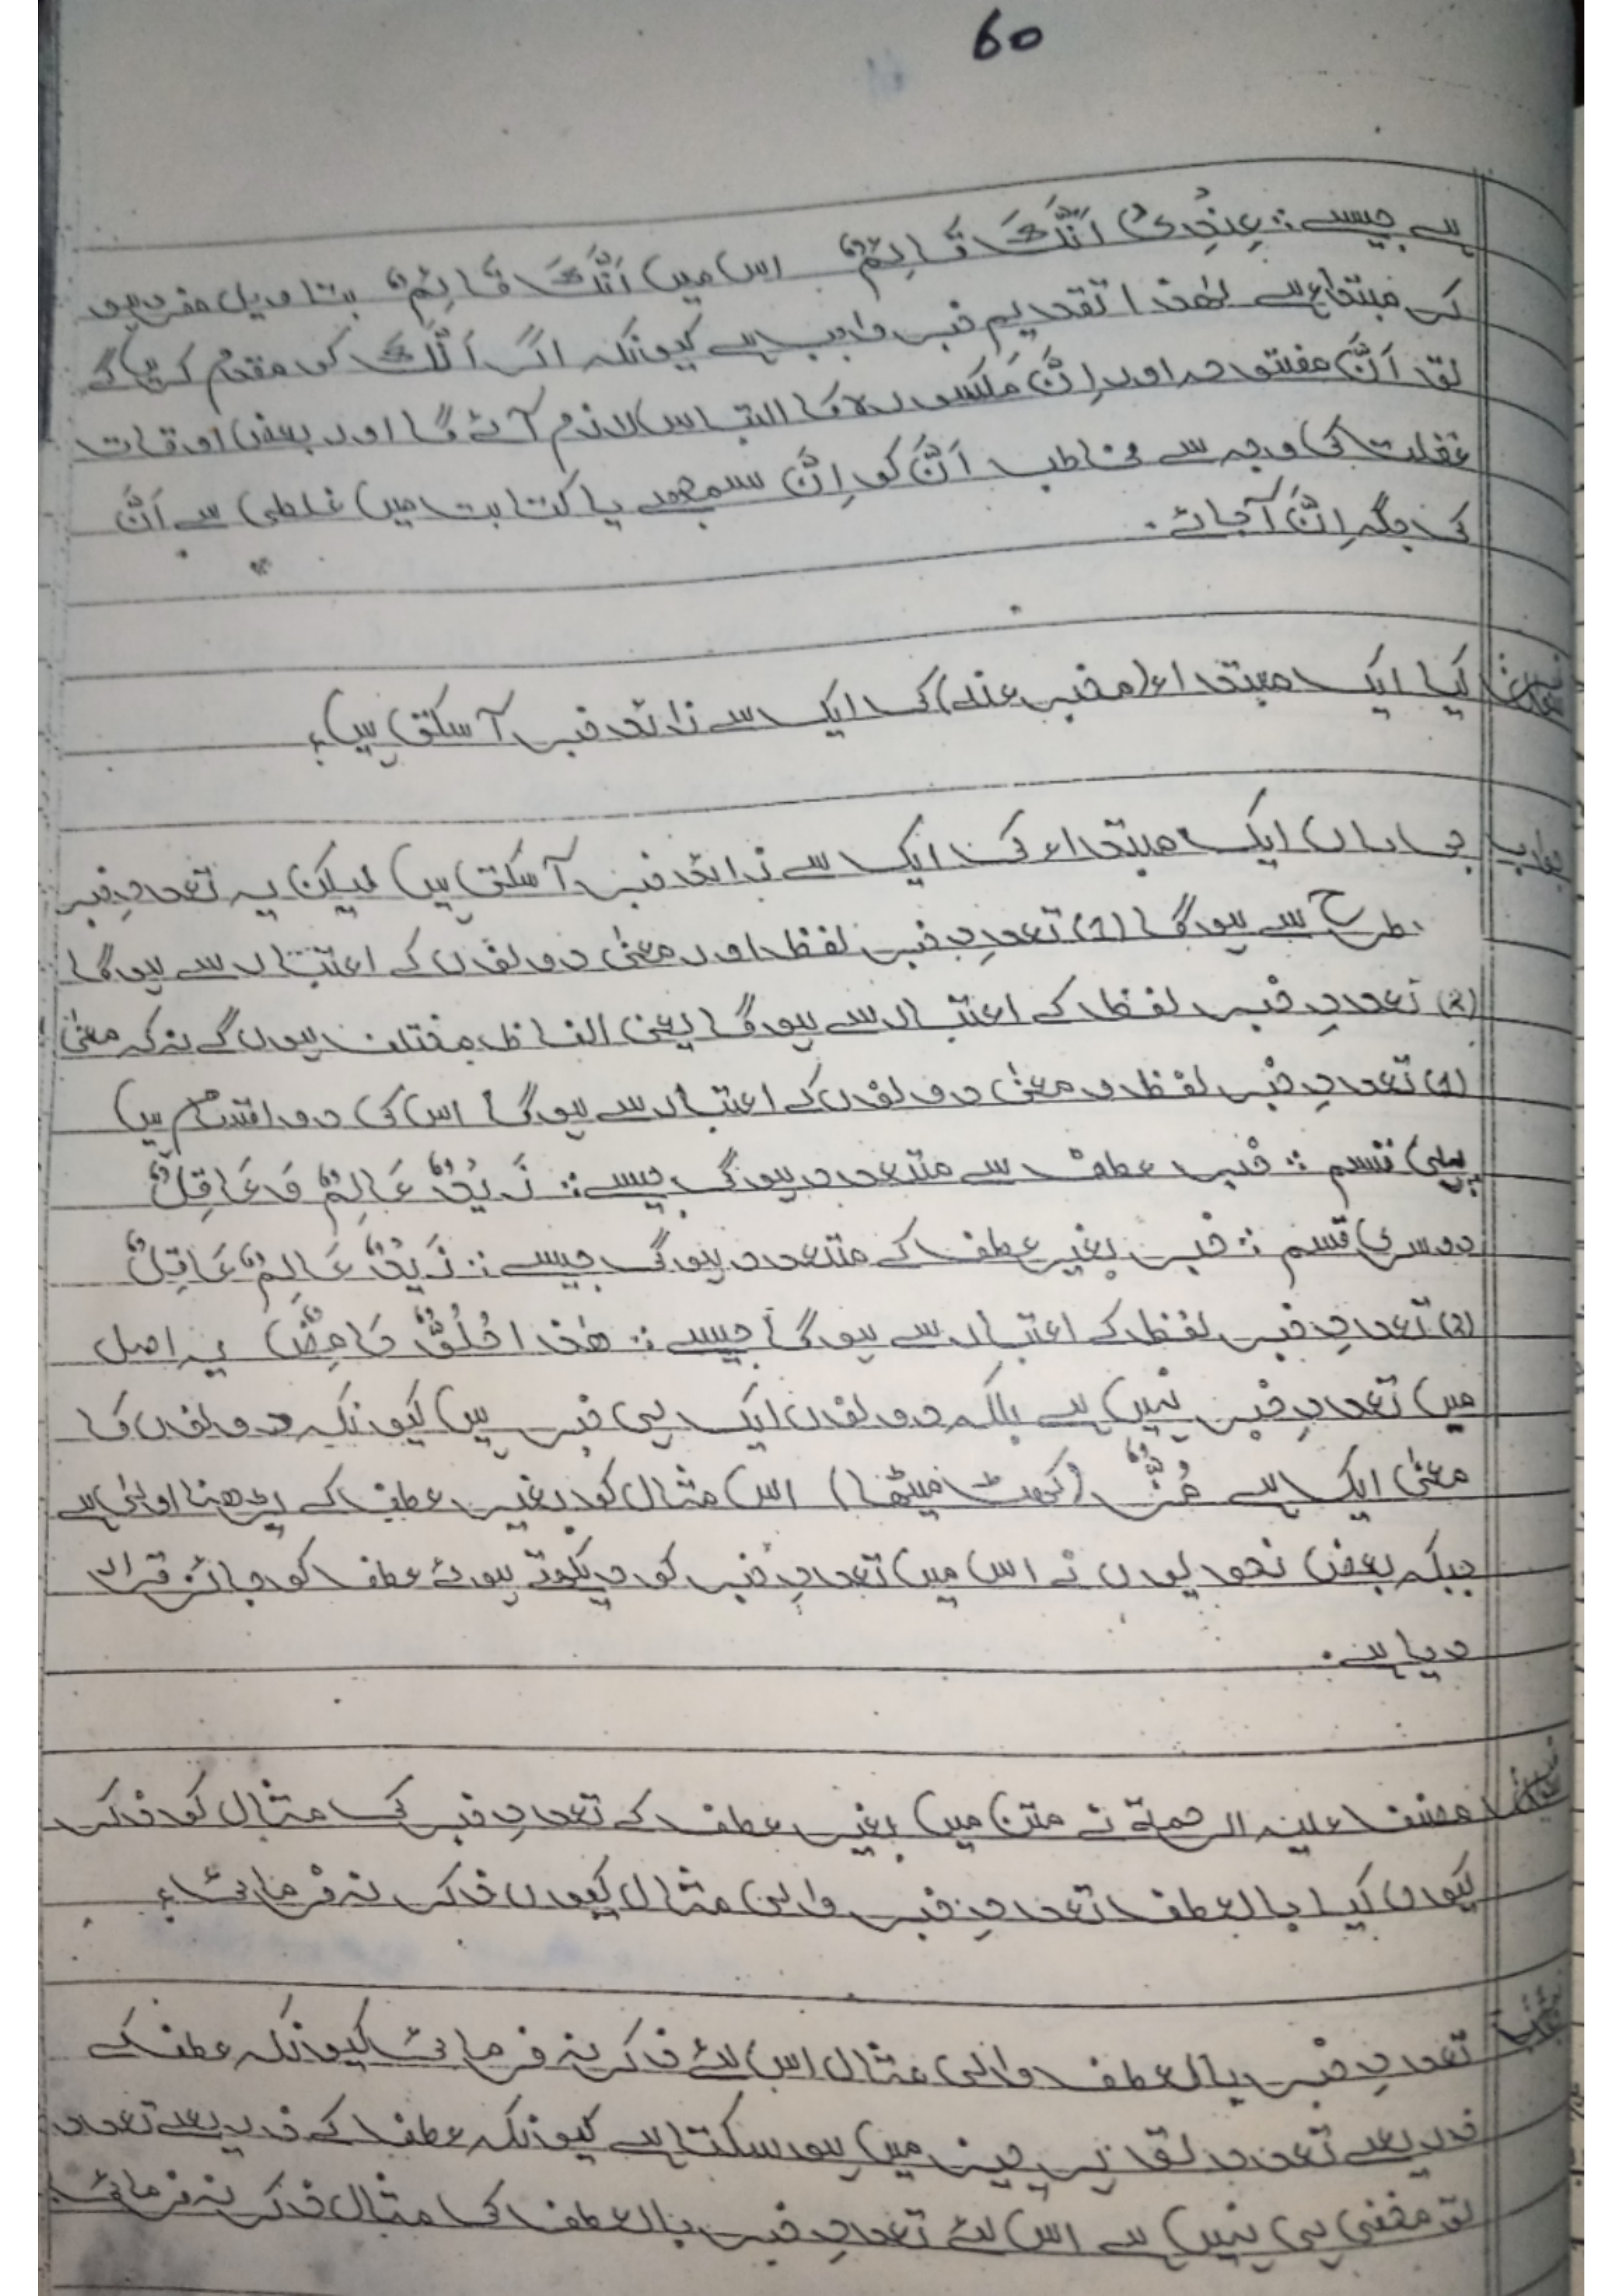 60
ہے جیسے: عِنْدِیْ اَنَّكَ قَائِمٌ اس میں اَنَّكَ قَائِمٌ بتاویل مفرد ہو
کر مبتداء ہے لھذا تقدیم خبر واجب ہے کیونکہ اگر اَنَّكَ کو مقدم کریں گے
تو اَنَّ مفتوحہ اور اِنَّ مکسورہ کا التباس لازم آئے گا اور بعض اوقات
غفلت کی وجہ سے مخاطب اَنَّ کو اِنَّ سمجھے یا کتابت میں غلطی سے اَنَّ
کی جگہ اِنَّ آجائے۔
کیا ایک مبتداء (مخبر عنہ) کی ایک سے زائد خبر آسکتی ہیں؟
جواب جی ہاں ایک مبتداء کی ایک سے زائد خبر آسکتی ہیں لیکن یہ تعددِ خبر
طرح سے ہوگا (1) تعددِ خبر لفظ اور معنیٰ دونوں کے اعتبار سے ہوگا
(2) تعددِ خبر لفظ کے اعتبار سے ہوگا یعنی الفاظ مختلف ہوں گے نہ کہ معنیٰ
(1) تعددِ خبر لفظ و معنیٰ دونوں کے اعتبار سے ہوگا اس کی دو اقسام ہیں
پہلی قسم: خبر عطف سے متعدد ہوگی جیسے: زَیْدٌ عَالِمٌ وَعَاقِلٌ
دوسری قسم: خبر بغیر عطف کے متعدد ہوگی جیسے: زَیْدٌ عَالِمٌ عَاقِلٌ
(2) تعددِ خبر لفظ کے اعتبار سے ہوگا جیسے: ھٰذا حُلُوٌّ حَامِضٌ یہ اصل
میں تعددِ خبر نہیں ہے بلکہ دونوں ایک ہی خبر ہیں کیونکہ دونوں کا
معنیٰ ایک ہے مُزٌّ (کھٹ میٹھا) اس مثال کو بغیر عطف کے پڑھنا اولیٰ ہے
جبکہ بعض نحویوں نے اس میں تعددِ خبر کو دیکھتے ہوئے عطف کو جائز قرار
دیا ہے۔
مصنف علیہ الرحمۃ نے متن میں بغیر عطف کے تعددِ خبر کی مثال کو ذکر
کیوں کیا بالعطف تعددِ خبر والی مثال کیوں ذکر نہ فرمائی؟
تعددِ خبر بالعطف والی مثال اس لئے ذکر نہ فرمائی کیونکہ عطف کے
ذریعے تعدد تو ہر چیز میں ہو سکتا ہے کیونکہ عطف کے ذریعے تعدد
تو مخفی ہی نہیں ہے اس لئے تعددِ خبر بالعطف کی مثال ذکر نہ فرمائی۔